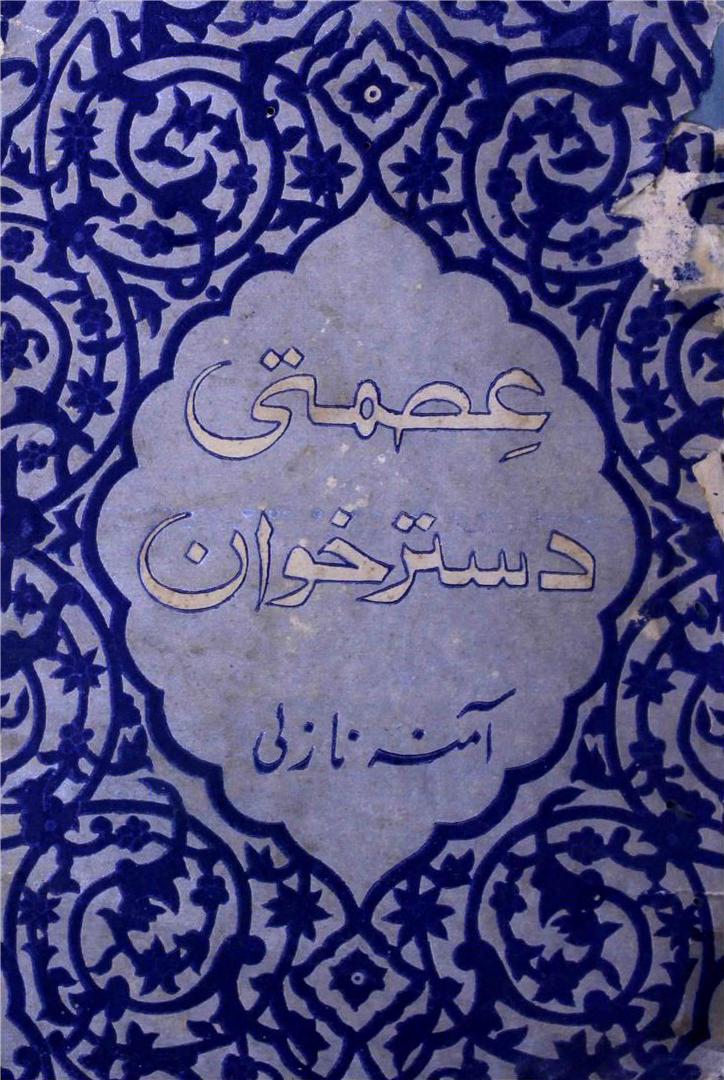 عِصمتی
دسترخوان
آمنہ نازلی